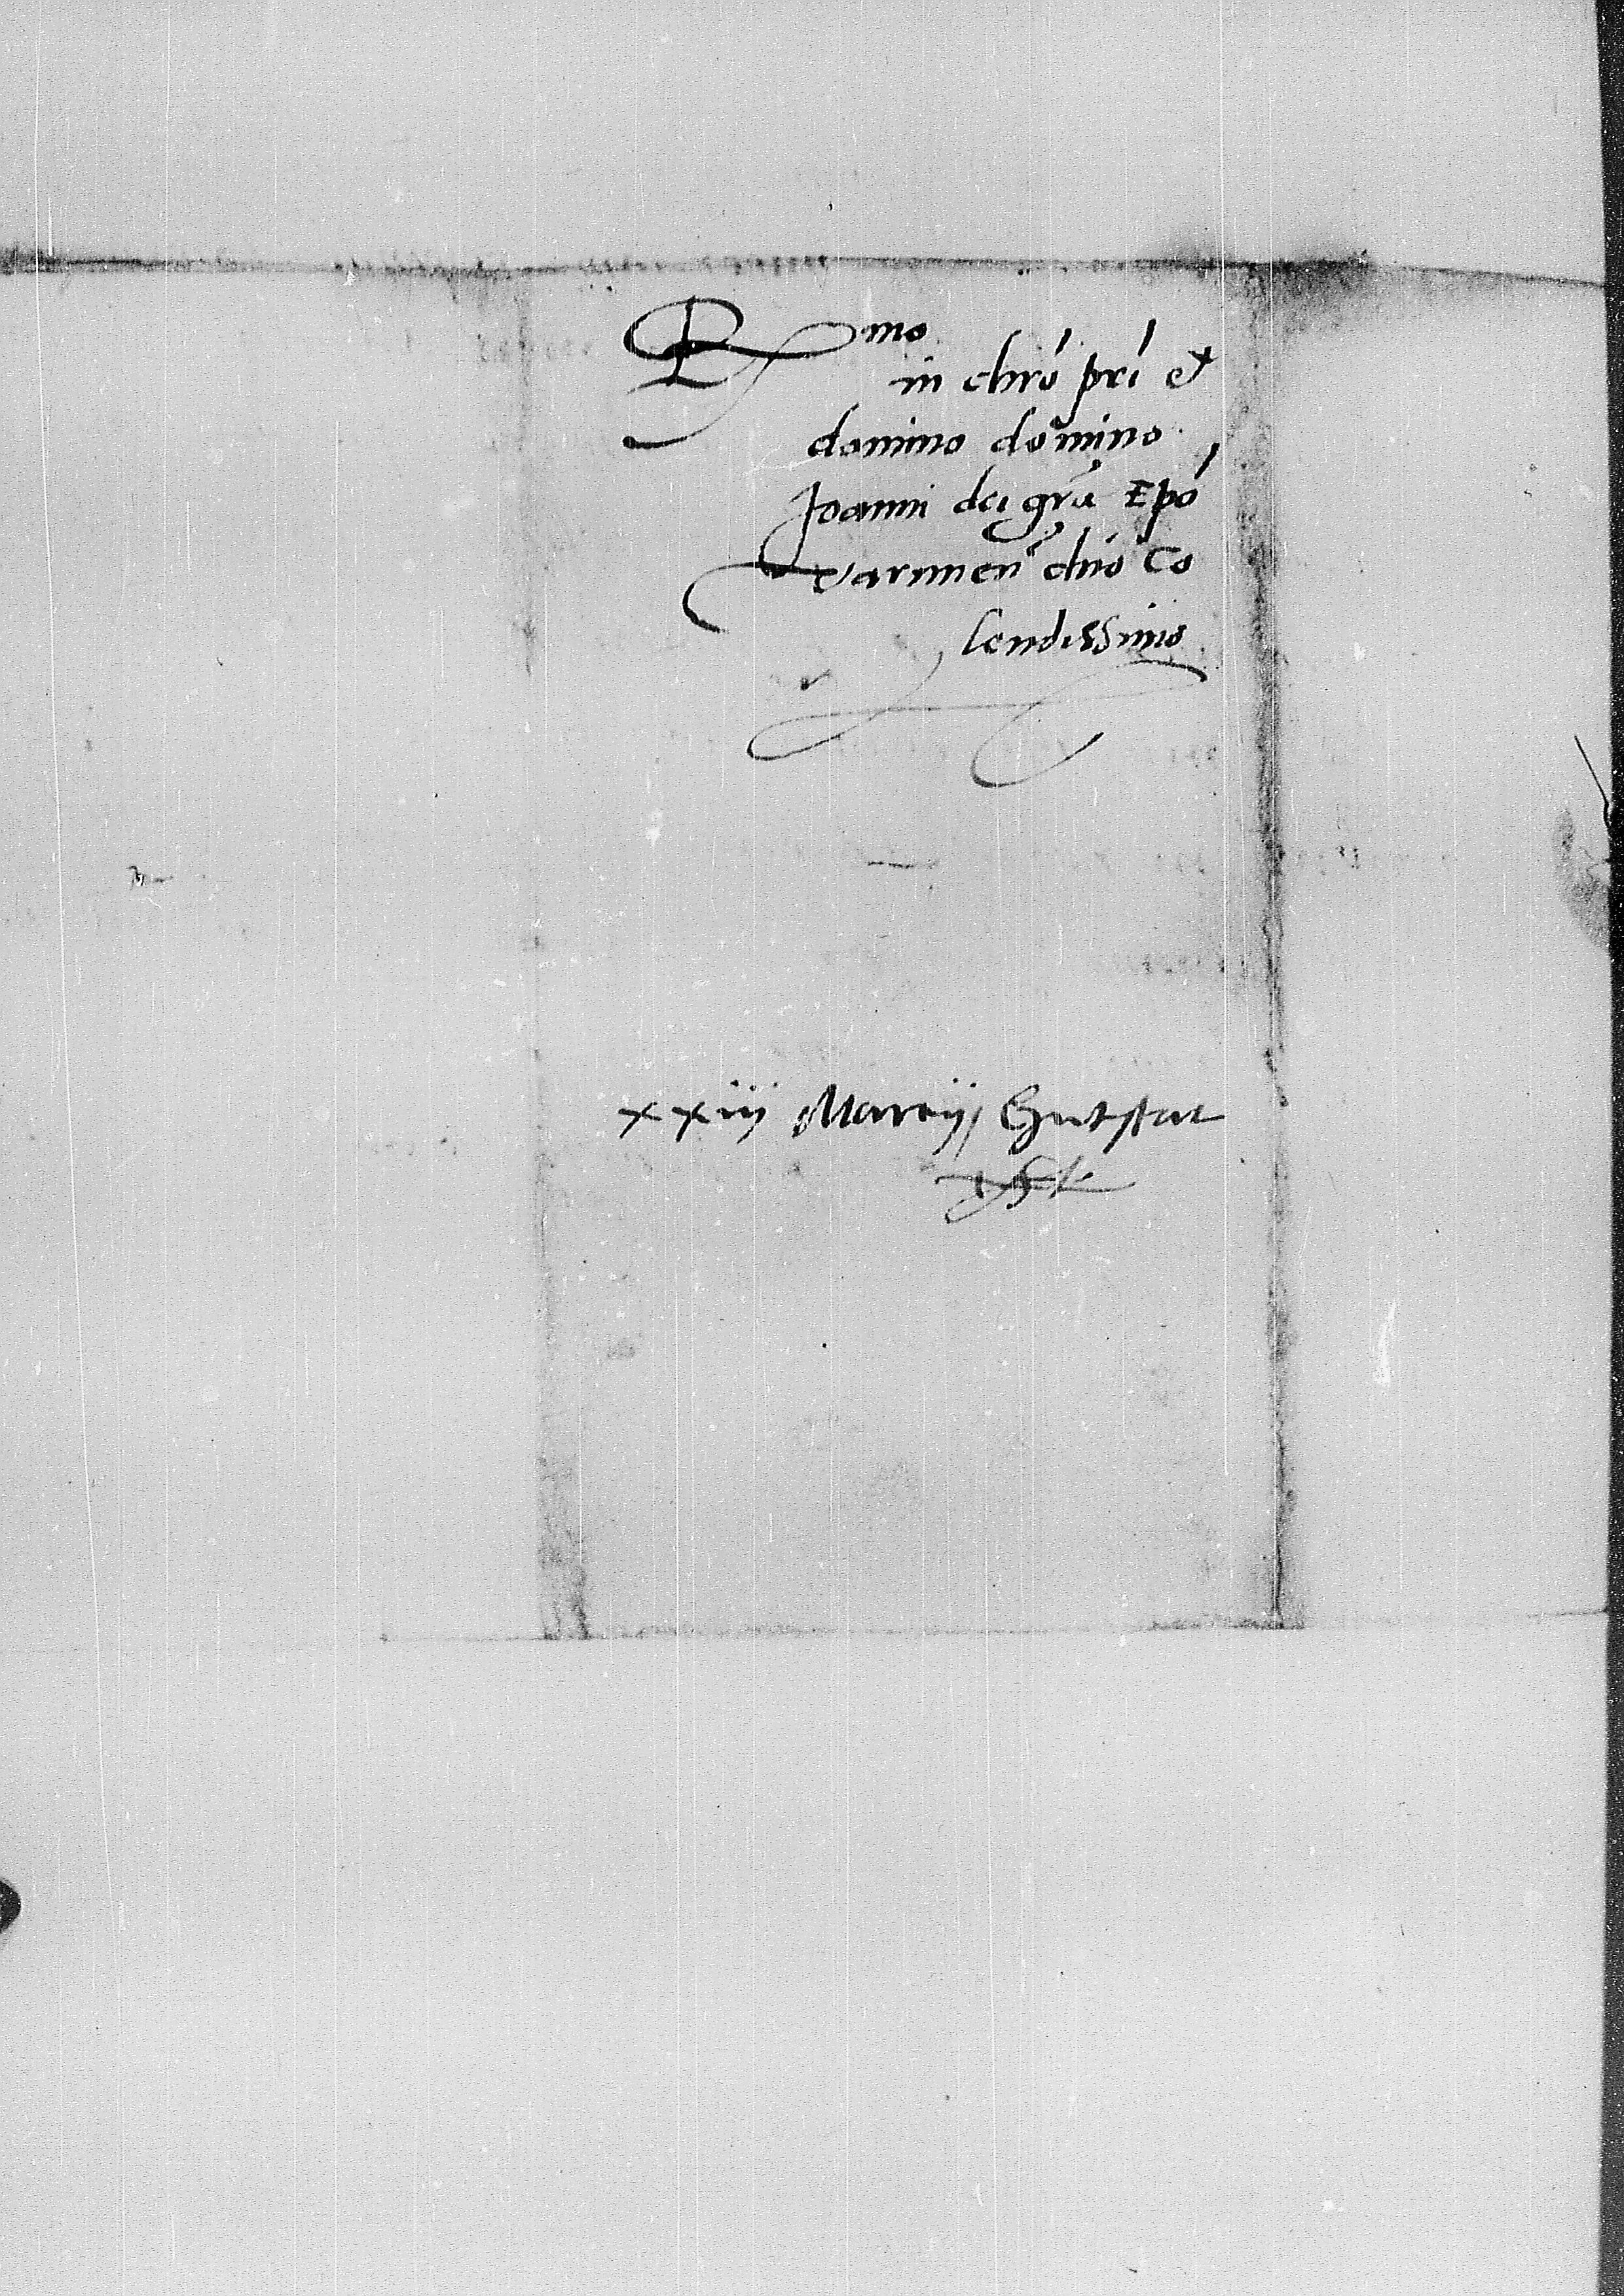 R mo
in chro pri et
domino domino
Joanni dei gra Epo
varmien dno Co
lendissimo
xxiij Marcij Gutstat